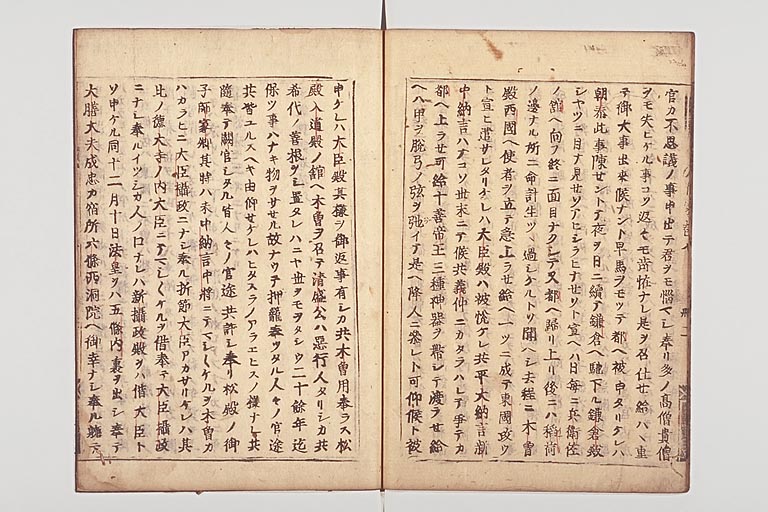 官カ不思議ノ事申出テ君ヲモ惱マシ奉リ多ノ髙僧貴僧
ヲモ失ヒケル事コソ返々モ ナレ是ヲ召仕セ給ハヽ重
テ御大事出来候ナント早馬ヲモツテ都ヘ被申タリケレハ
朝泰此事陳セントテ夜ヲ日ニ續テ鎌倉ヘ馳下ル鎌倉殿
シヤツニ目ナ見セソアヒシラヒナセソト宣ヘハ日毎ニ兵衛佐
ノ舘ヘ向フ終ニ面目ナクシテ又都ヘ歸リ上リ後ニハ稲荷
ノ邊ナル所ニ命計生ツヽ過シケルトソ聞ヘシ去程ニ木曽
殿西國ヘ使者ヲ立テ急上ラセ給ヘ一ツニ成テ東國攻ウ
ト宣ヒ遣サレタリケレハ大臣殿ハ被悦ケレ共平大納言新
中納言ハナコソ世末ニテ候共義仲ニカタラハレテ爭テカ
都ヘ上ラセ可給十善帝王三種神器ヲ帶シテ渡ラセ給
ヘハ甲ヲ脱弓ノ弦ヲ弛イテ是ヘ降人ニ參レト可仰候ト被
申ケレハ大臣殿其様ヲ御返事有シカ共木曽用奉ラス松
殿入道殿ノ舘ヘ木曽ヲ召テ清盛公ハ悪行人タリシカ共
希代ノ善根ヲシ置タレハニヤ世ヲモヲタシウ二十餘年迄
保ツ事ハナキ物ヲサセル故ナウテ押籠奉ツタル人々ノ官途
共皆ユルスヘキ由仰セケレハヒタスラノアラエヒスノ様ナレ共
隨奉テ闕官シタル皆人々ノ官途共許シ奉リ松殿ノ御
子師家卿其時ハ未中納言中將ニテマシ〱ケルヲ木曽カ
ハカラヒニ大臣攝政ニナシ奉ル折節大臣アカサリケレハ其
比ノ徳大寺ノ内大臣ニテマシ〱ケルヲ借奉テ大臣攝政
ニナシ奉ルイツシカ人ノ口ナレハ新攝政殿ヲハ借大臣ト
ソ申ケル同十二月十日法皇ヲハ五條内裏ヲ出シ奉テ
大膳大夫成忠カ宿所六條西洞院ヘ御幸ナシ奉ル軈テ